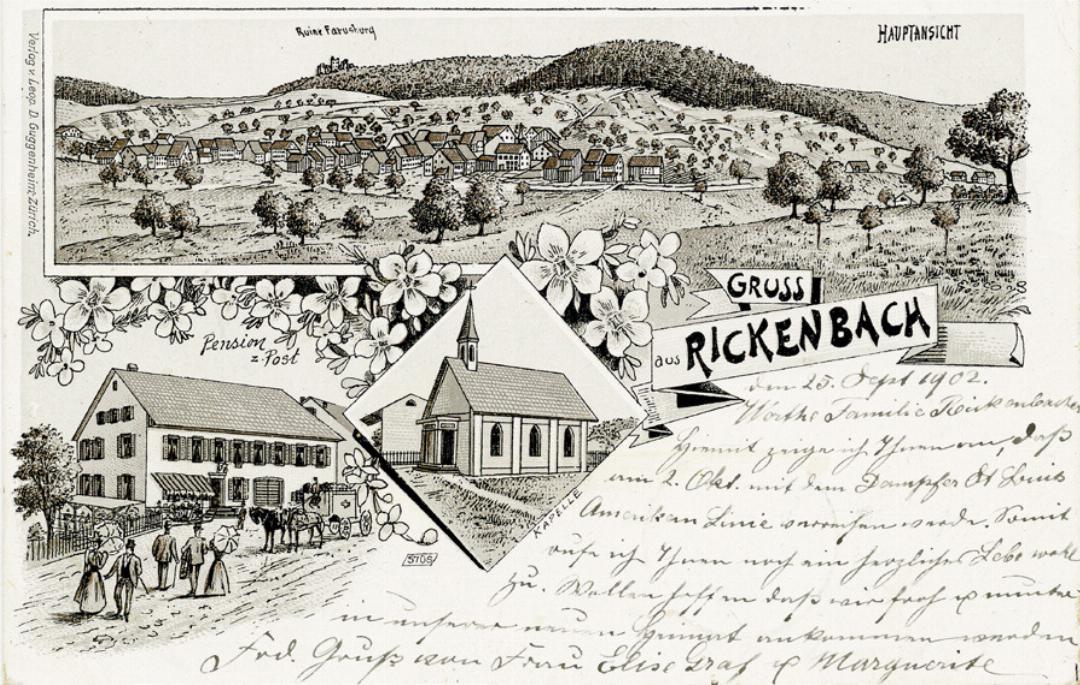 Ruine Farnsburg
HAUPTANSICHT
Verlag v. Leop. D. Guggenheim, Zürich.
GRUSS
aus RICKENBACH
Pension
z. Post
KAPELLE
3706
den 25. Sept 1902.
Werthe Familie Rickenbacher
Hiermit zeige ich Ihnen an, daß
am 2. Okt. mit dem Dampfer St Louis
Amerikan Linie verreisen werde. Somit
rufe ich Ihnen noch ein herzliches Lebe wohl
zu. Wollen hoffen daß wir froh u munter
in unserer neuen Heimat ankommen werden
Frd. Gruß von Frau Elise Graf u Marguerite